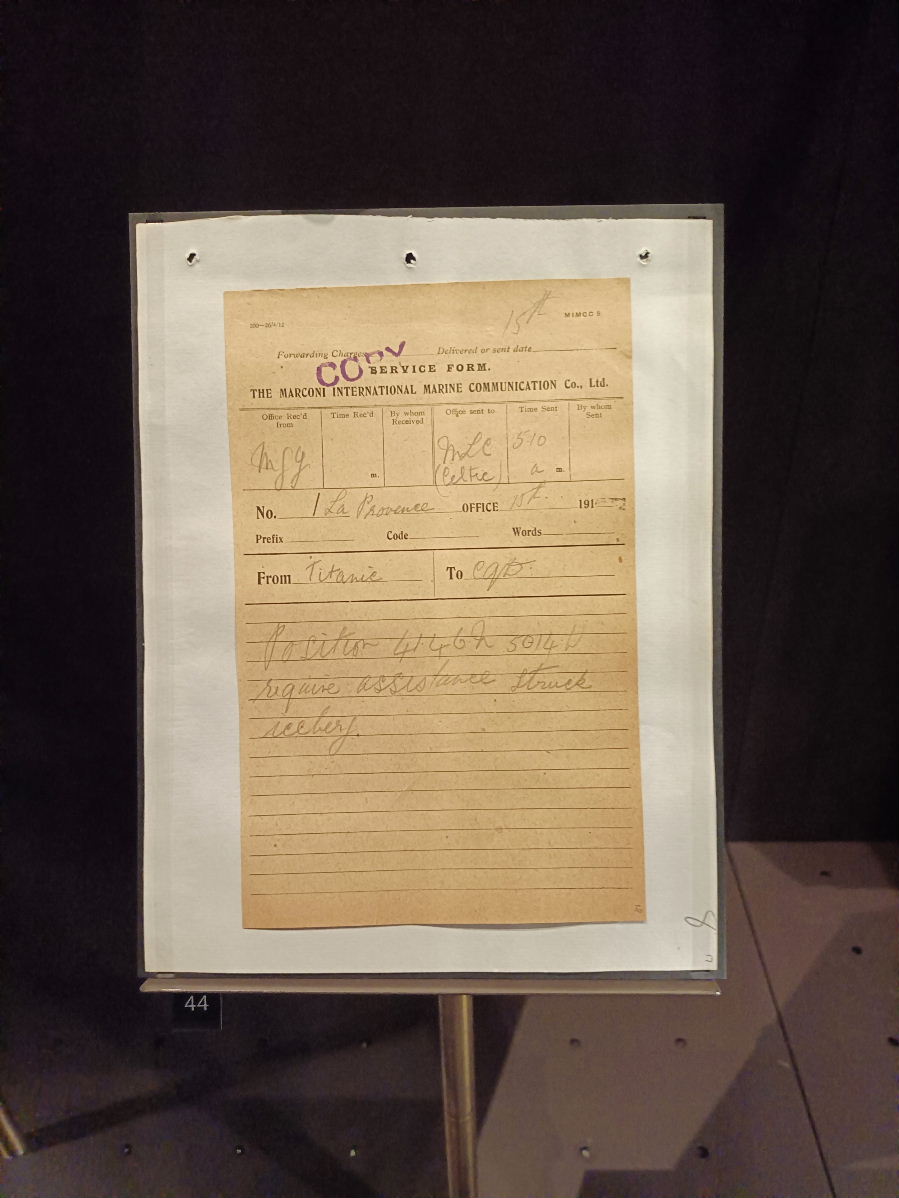 15th
MIMCC 8
Forwarding Charges Delivered or sent date
COPY
SERVICE FORM.
THE MARCONI INTERNATIONAL MARINE COMMUNICATION Co., Ltd.
Office Rec'd from Time Rec'd By whom Received Office sent to Time Sent By whom Sent
m. MLC (Celtic) 510 a m.
No. 1 La Provence OFFICE 15th 191
Prefix Code Words
From Titanic To CQD
Position 41.46N 5014W
require assistance struck
iceberg.
44